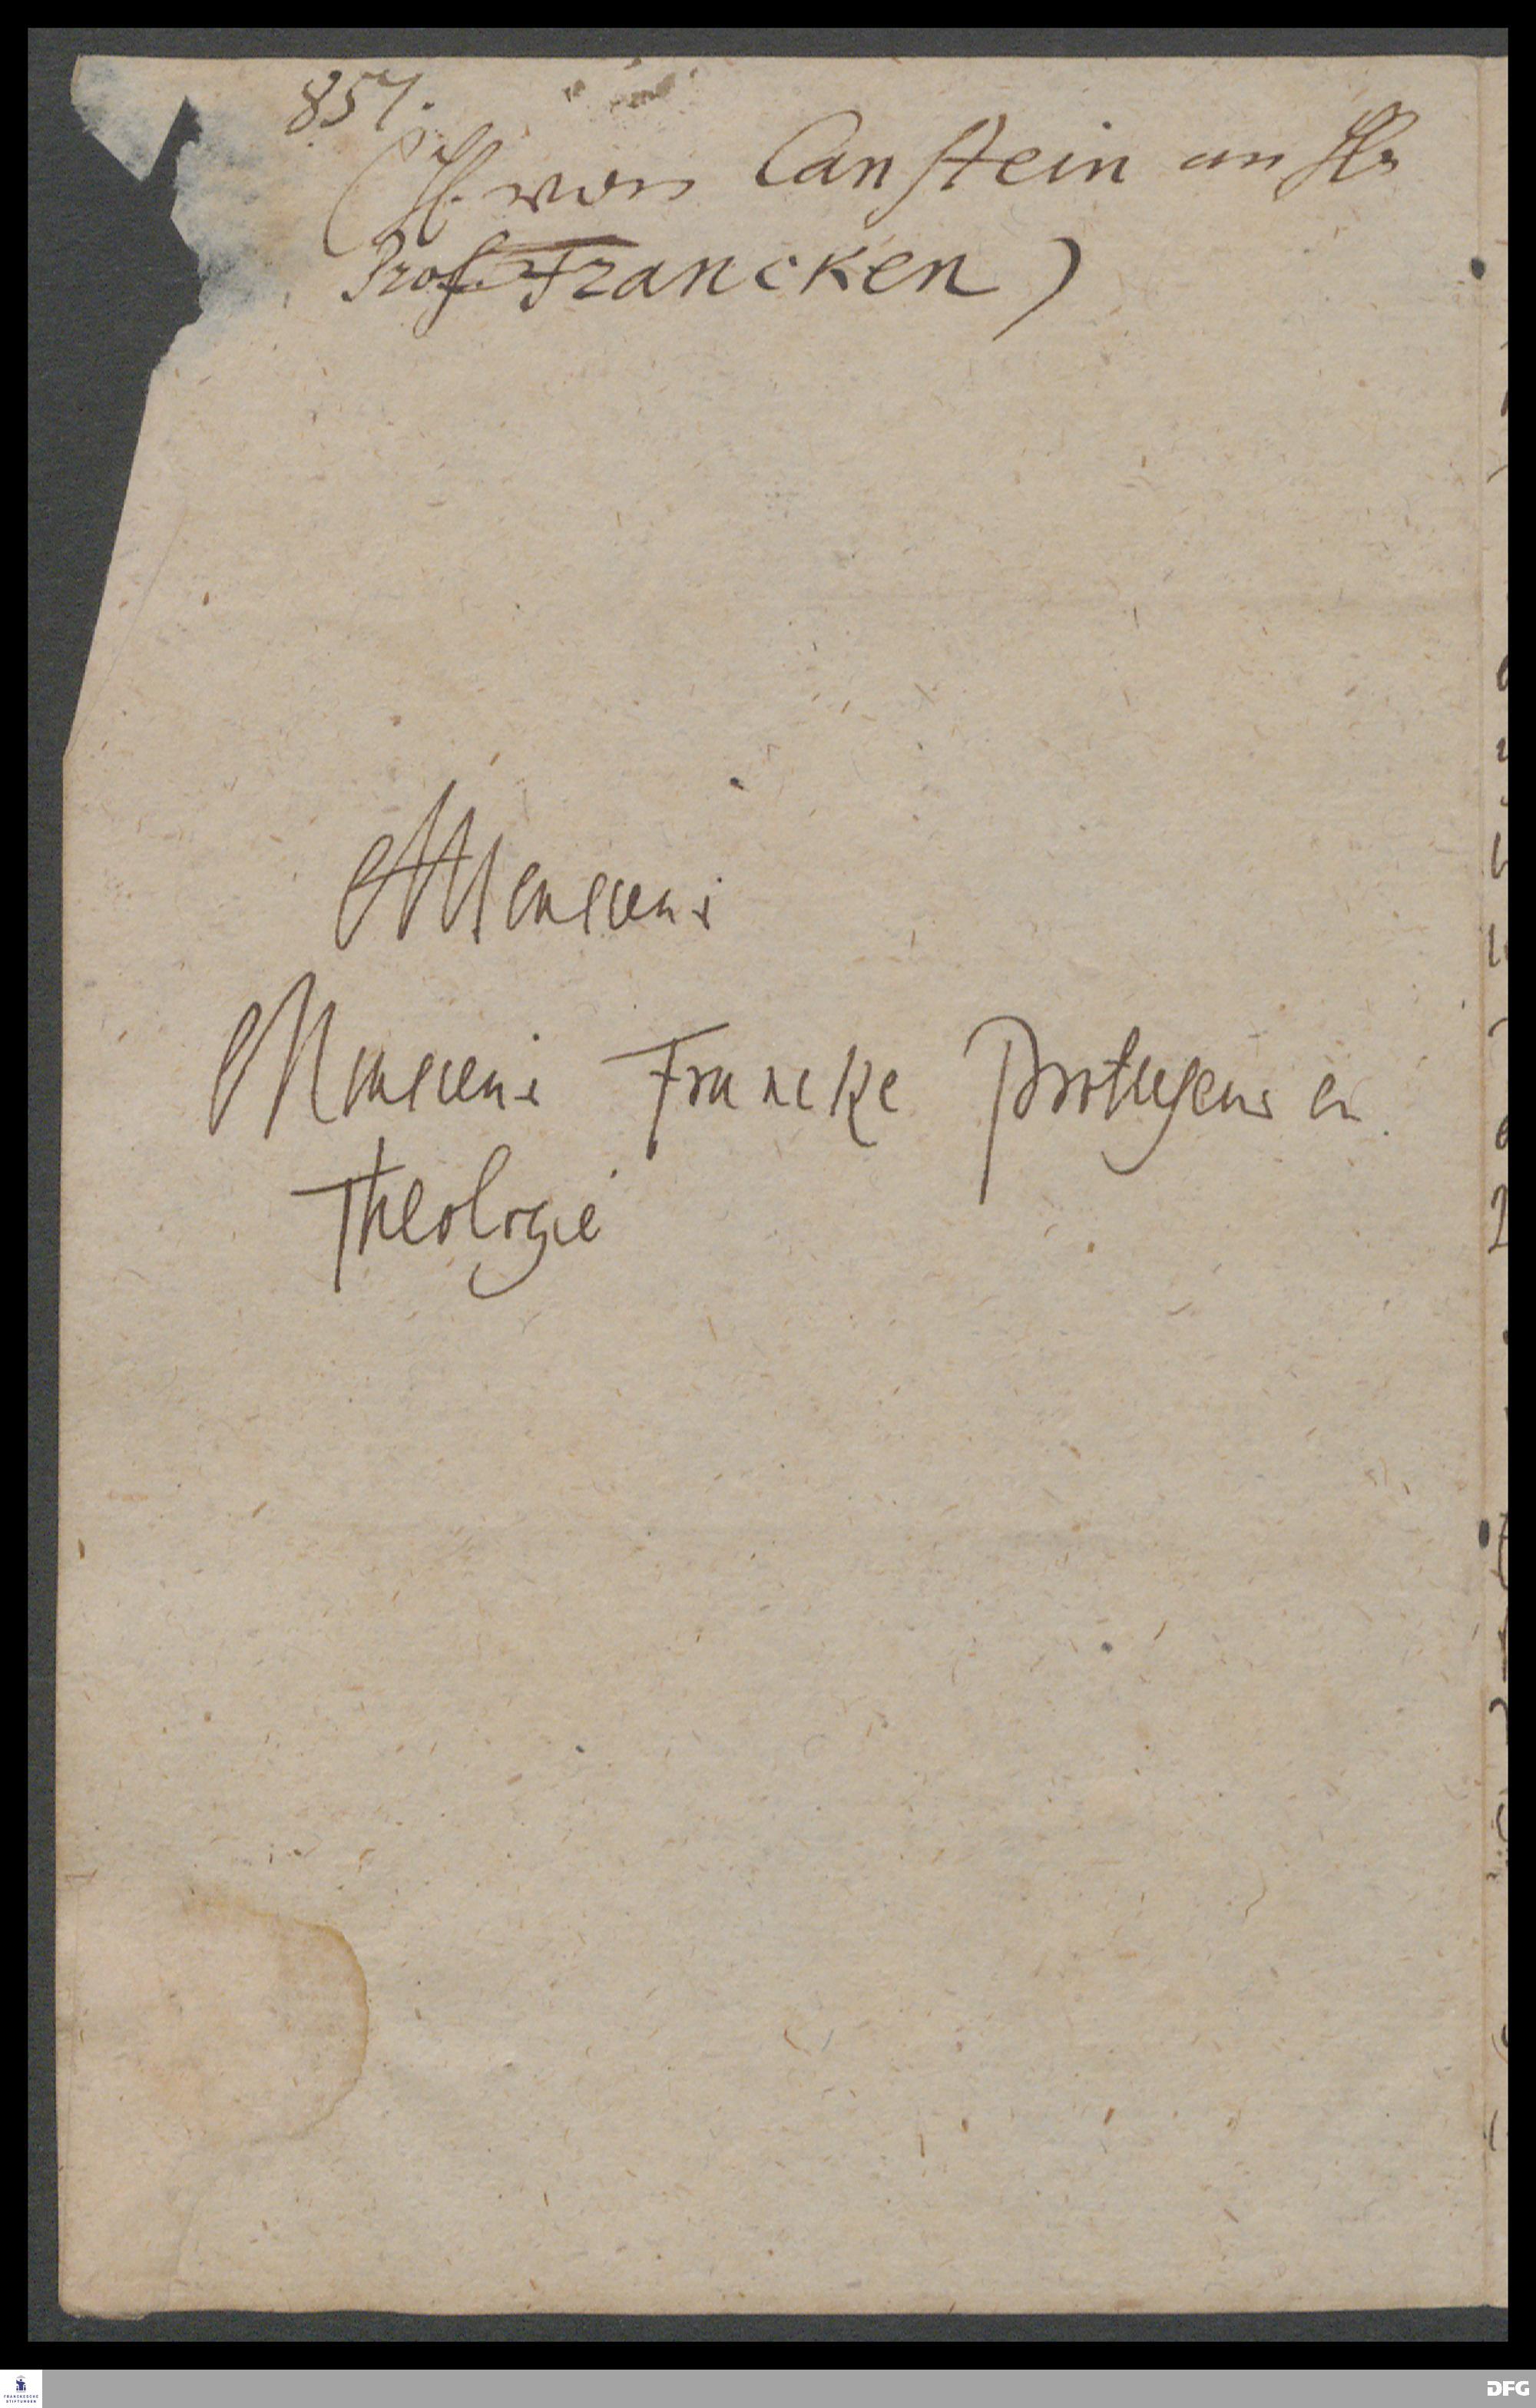 857.
(H. von Canstein an H.
Prof. Francken)
A Monsieur
Monsieur Francke Professeur en
Theologie
FRANCKESCHE
STIFTUNGEN
DFG